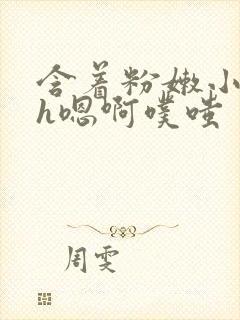 含着粉嫩小
h嗯啊噗嗤
周雯